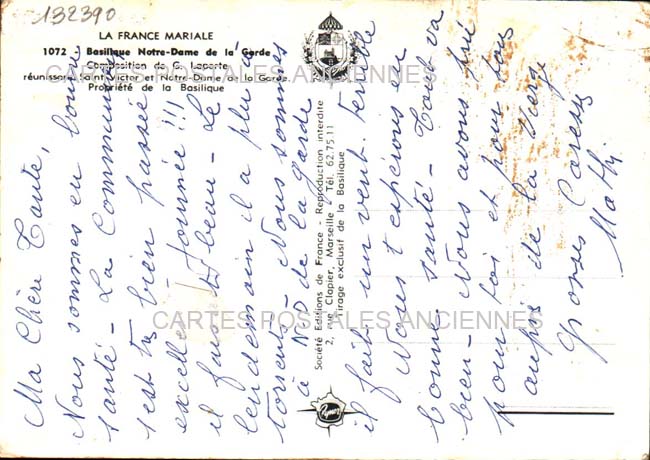 132390
LA FRANCE MARIALE
1072 Basilique Notre-Dame de la Garde
Composition de G. Laporte
réunissant Saint Victor et Notre-Dame de la Garde.
Propriété de la Basilique
CARTES POSTALES ANCIENNES
Société Editions de France - Reproduction interdite
2, rue Clapier, Marseille - Tél. 62.75 11
Tirage exclusif de la Basilique
CARTES POSTALES ANCIENNES
Ma Chère Tante,
Nous sommes en bonne
santé - La Communion
s'est très bien passée
excelle journée !!!
il fais très beau - Le
lendemain il a plu à
torrent. Nous sommes
à N D de la garde
il fait un vent terrible
Nous t espérons en
bonne santé - Tout va
bien - Nous avons prié
pour toi et pour tous
aupres de la Vierge
Grosses Caresses
Mathi